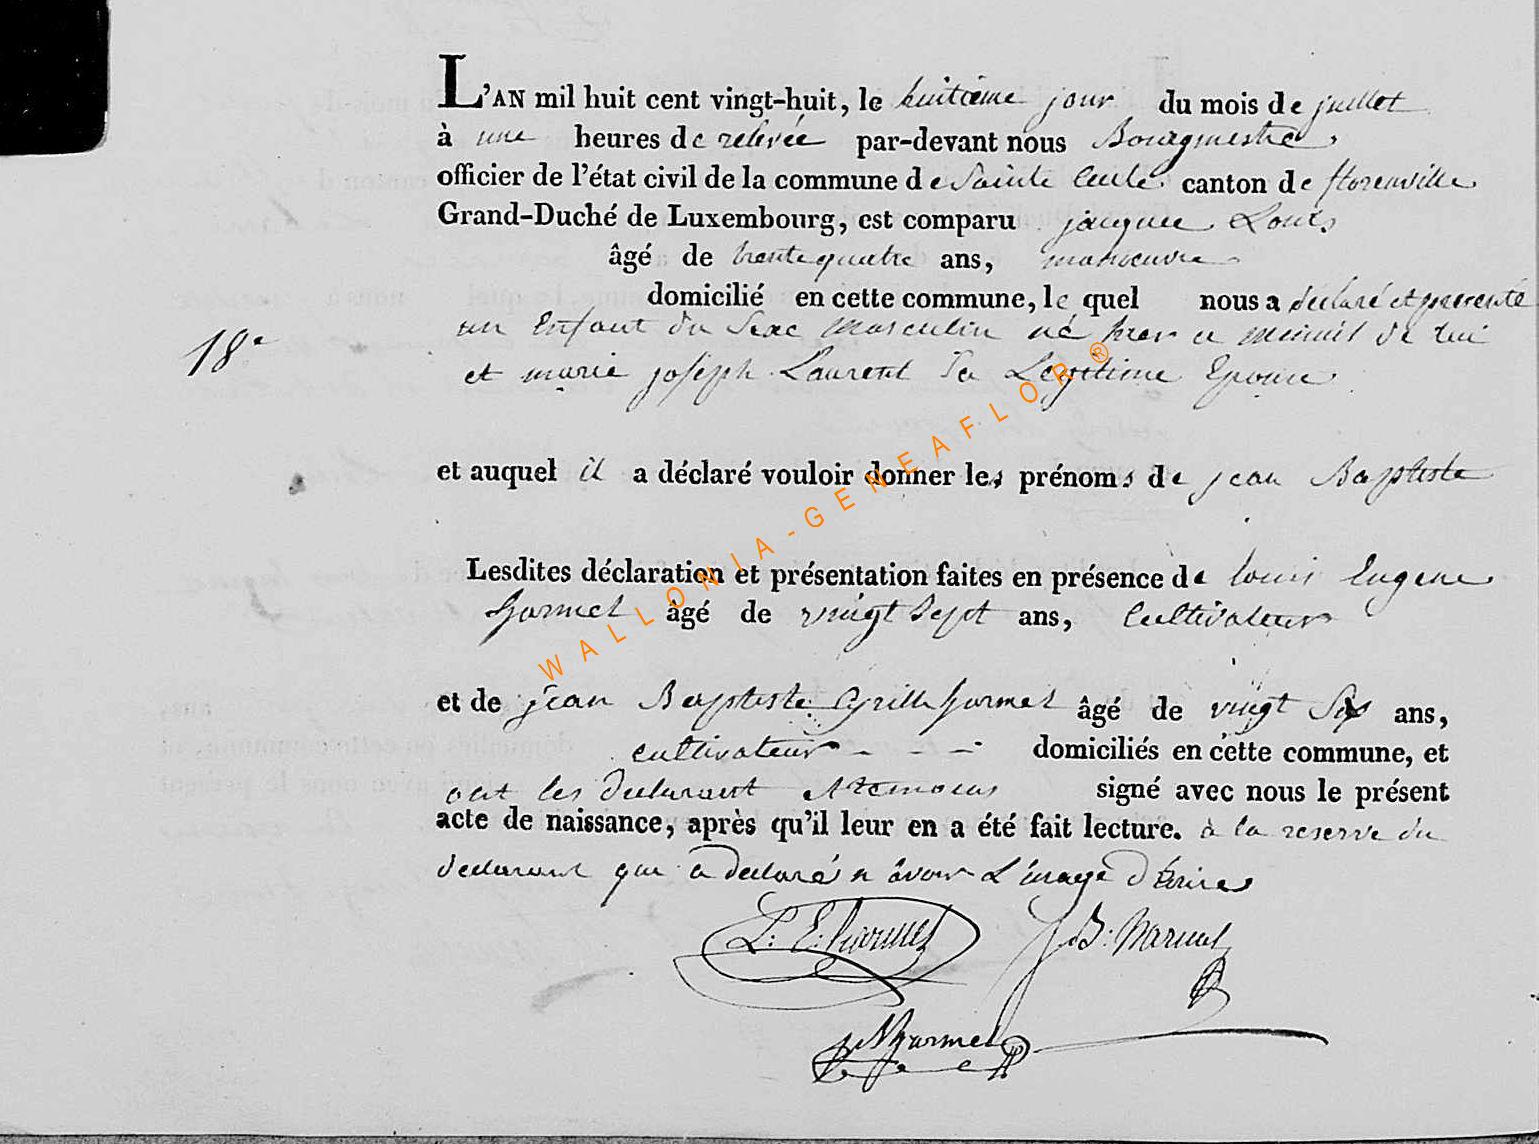 L'AN mil huit cent vingt-huit, le huitieme jour du mois de juillet
à une heures de relevée par-devant nous Bourgmestre
officier de l'état civil de la commune de Sainte Cecile canton de florenville
Grand-Duché de Luxembourg, est comparu jacques Louis
âgé de trente quatre ans, manoeuvre
domicilié en cette commune, le quel nous a déclaré et presenté
18e
un Enfant du Sexe Masculin né hier a minuit de lui
et marie joseph Laurent Sa Légitime Epouse
et auquel il a déclaré vouloir donner les prénoms de jean Baptiste
Lesdites déclaration et présentation faites en présence de louis Eugene
hormel âgé de vingt Sept ans, Cultivateur
et de jean Baptiste Cyrille hormel âgé de vingt Six ans,
cultivateur - - - domiciliés en cette commune, et
ont les declarant et temoins signé avec nous le présent
acte de naissance, après qu'il leur en a été fait lecture. à la reserve du
declarant qui a declaré n'avoir L'usage d'Ecrire
L: E: hormel J B: Harmel
WALLONIA-GENEAFLOR®